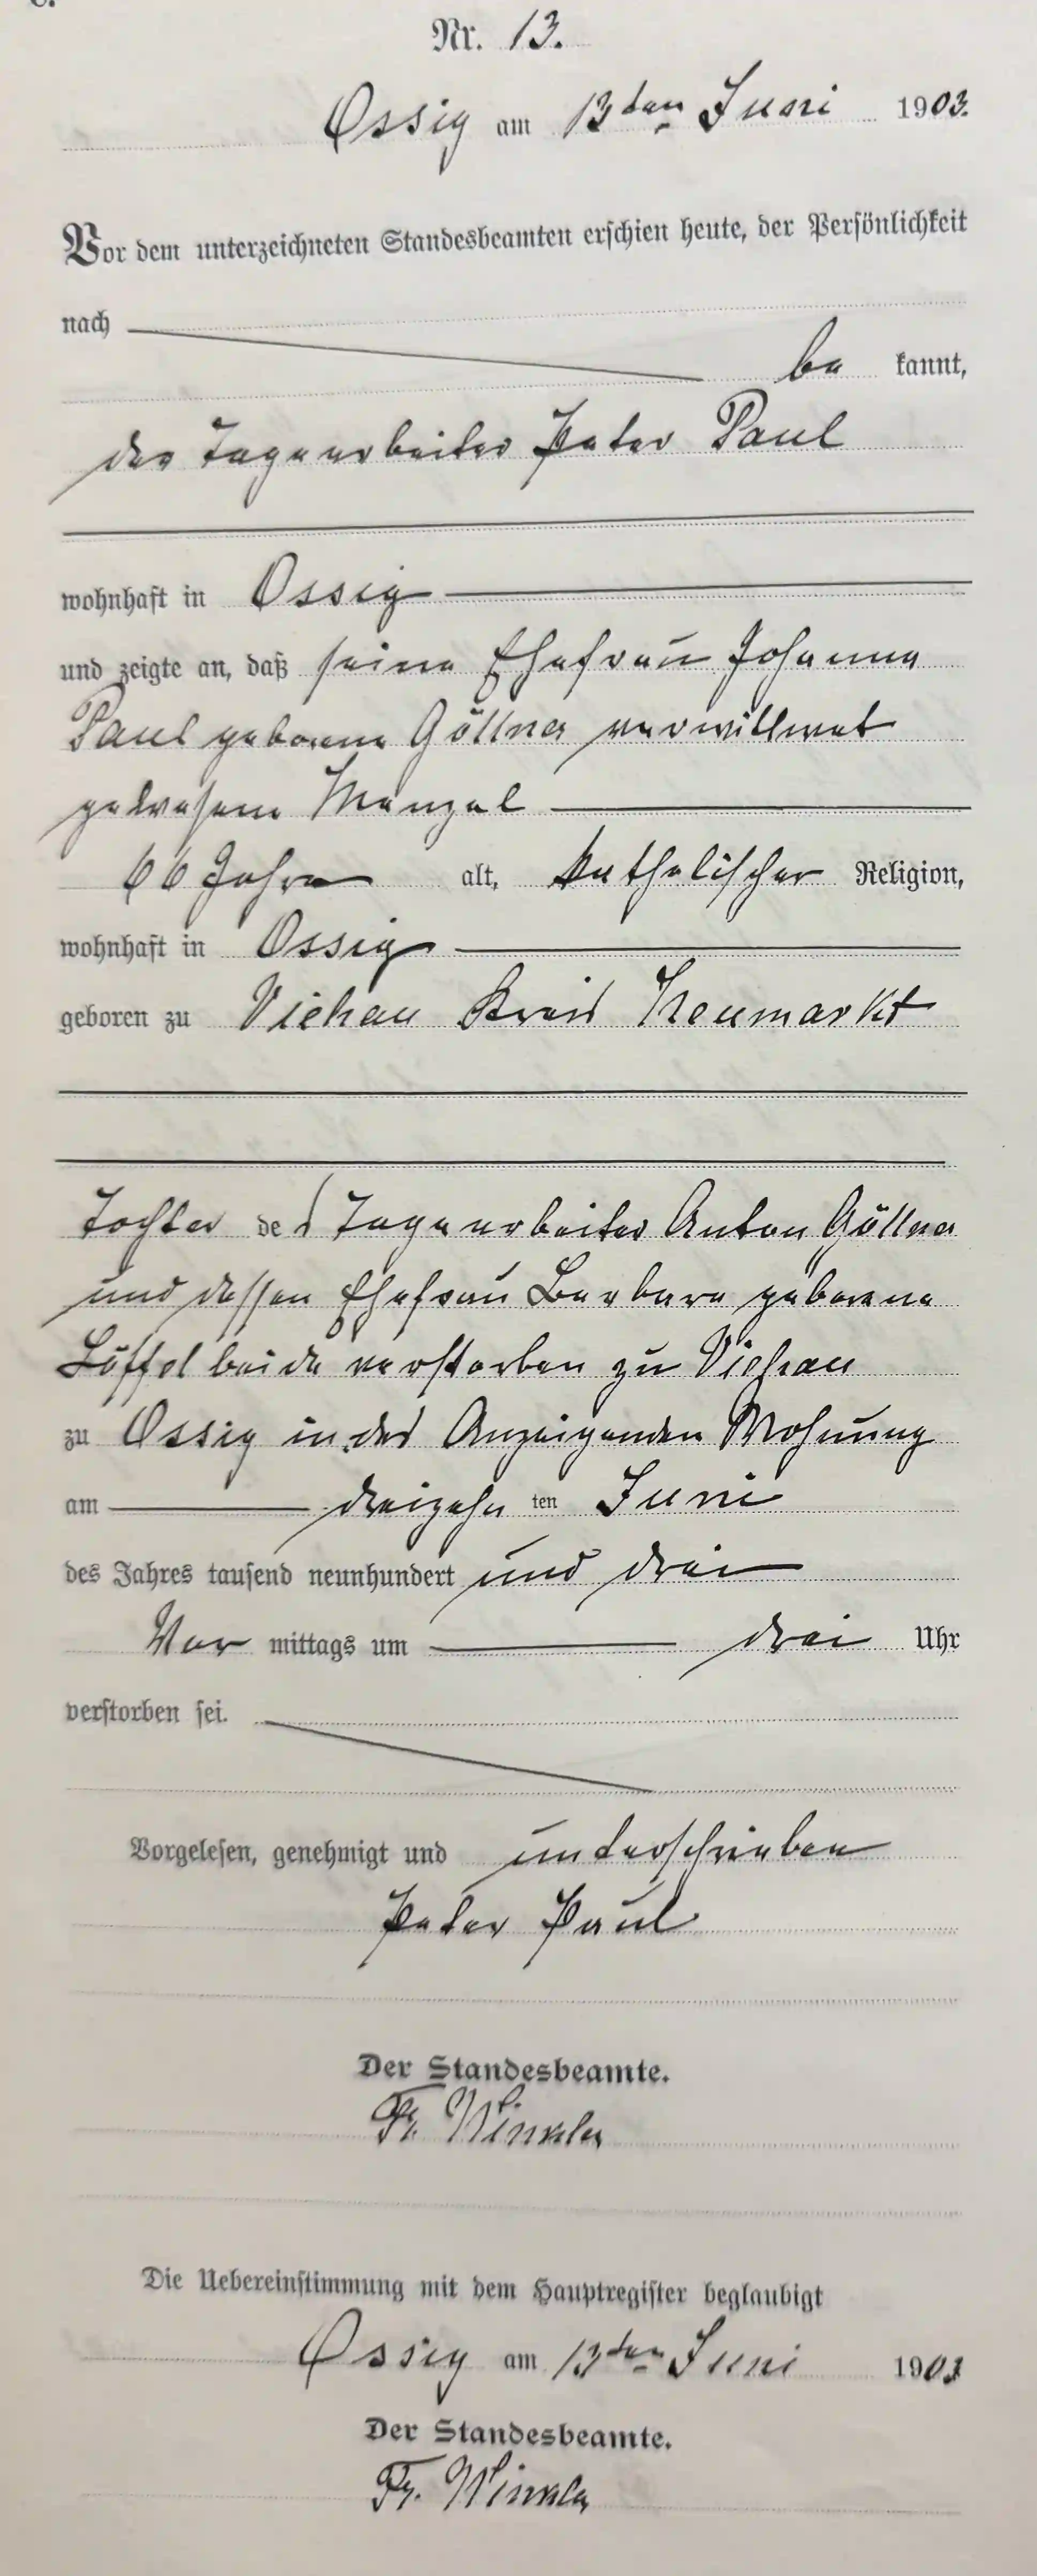 Nr. 13.
Ossig am 13ten Juni 1903.
Vor dem unterzeichneten Standesbeamten erschien heute, der Persönlichkeit
nach
be kannt,
der Tagearbeiter Peter Paul
wohnhaft in Ossig
und zeigte an, daß seine Ehefrau Johanna
Paul geborene Göllner verwittwet
gewesene Menzel
66 Jahre alt, katholischer Religion,
wohnhaft in Ossig
geboren zu Viehau Kreis Neumarkt
Tochter des Tagearbeiter Anton Göllner
und dessen Ehefrau Barbara geborene
Löffel beide verstorben zu Viehau
zu Ossig in des Anzeigenden Wohnung
am dreizehn ten Juni
des Jahres tausend neunhundert und drei
Vor mittags um drei Uhr
verstorben sei.
Vorgelesen, genehmigt und unterschrieben
Peter Paul
Der Standesbeamte.
Fr. Winkler
Die Uebereinstimmung mit dem Hauptregister beglaubigt
Ossig am 13ten Juni 1903
Der Standesbeamte.
Fr. Winkler